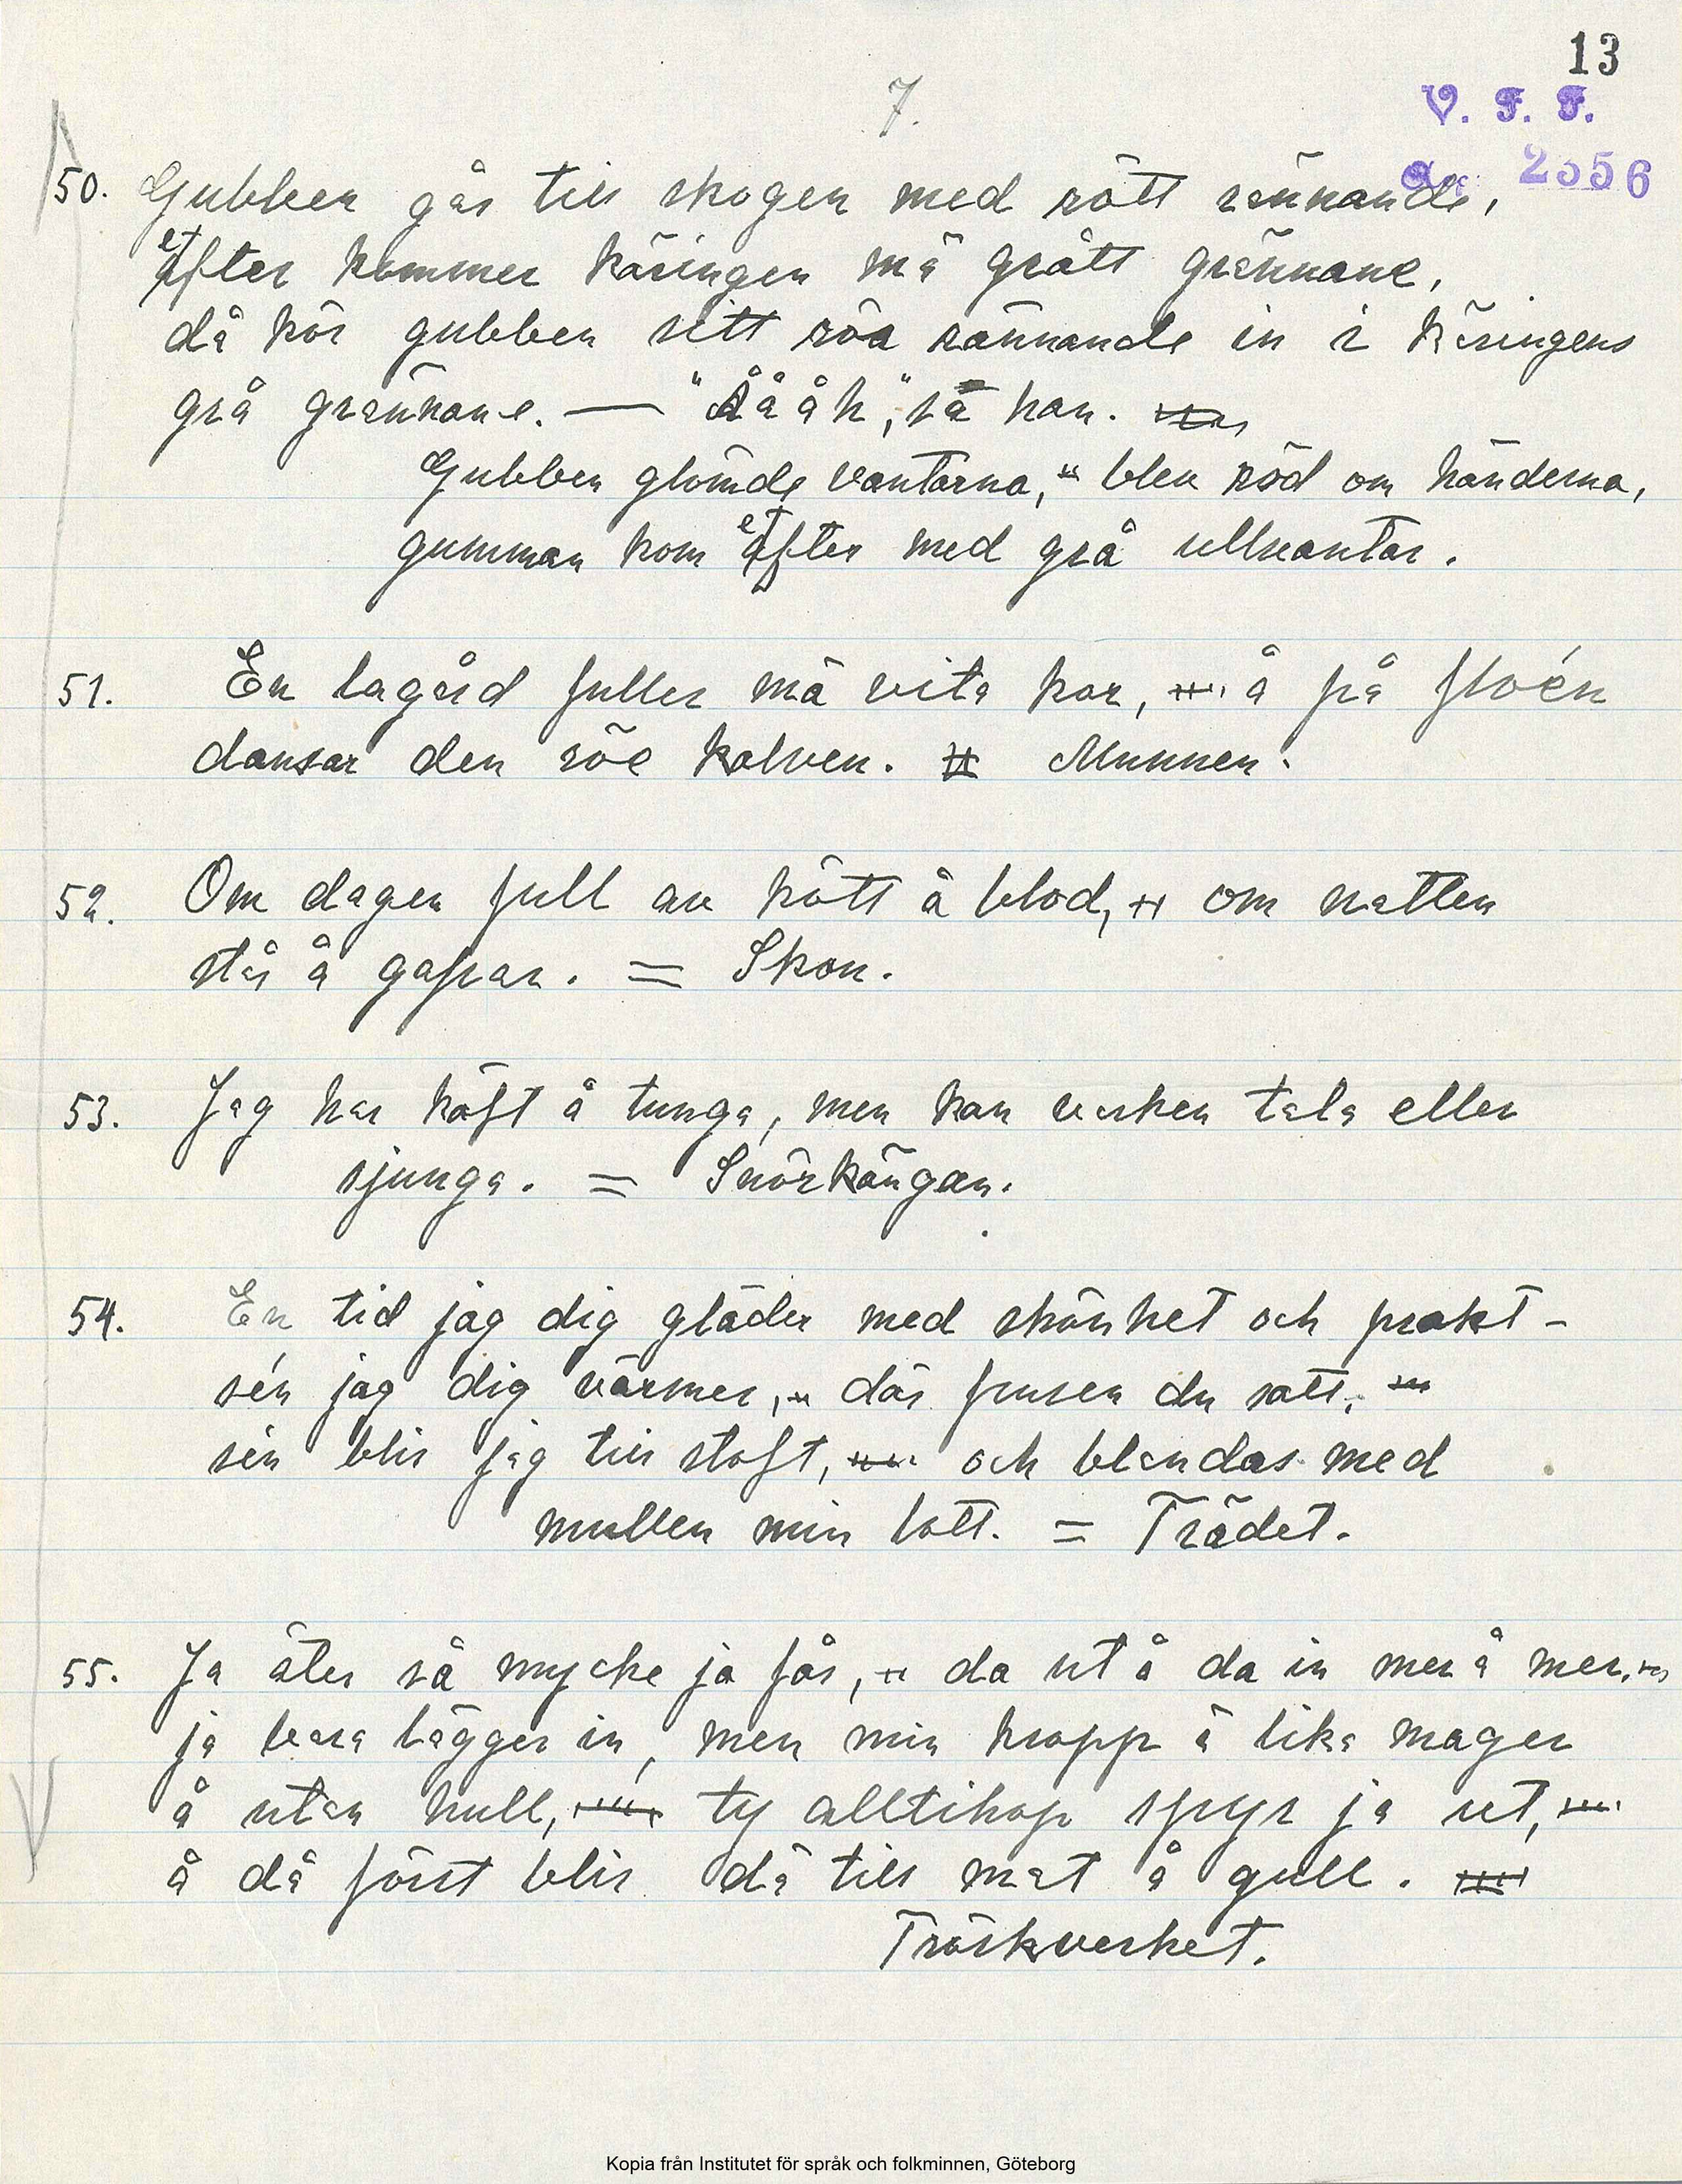 13
7.
V. F. F.
2356
50. Gubben går till skogen med rött rännande,
efter kommer käringen mä grått grännane,
då kör gubben sitt röa rännande in i käringens
grå grännane. — "Åååh," sa han.
Gubben glömde vantarna, blev röd om händerna,
gumman kom efter med grå ullvantar.
51. En lagård fuller mä vita kor, å på floén
dansar den röe kalven. Munnen.
52. Om dagen full av kött å blod, om natten
står å gapar. = Skon.
53. Jag har käft å tunga, men kan varken tala eller
sjunga. = Snörkängan.
54. En tid jag dig gläder med skönhet och prakt -
sén jag dig värmer, där frusen du satt,
sén blir jag till stoft, och blandas med
mullen min lott. = Trädet.
55. Ja äter så mycke ja får, da ut å da in mer å mer,
ja bara lägger in, men min kropp ä lika mager
å utan hull, ty alltihop spyr ja ut,
å då först blir dä till mat å gull.
Tröskverket.
Kopia från Institutet för språk och folkminnen, Göteborg